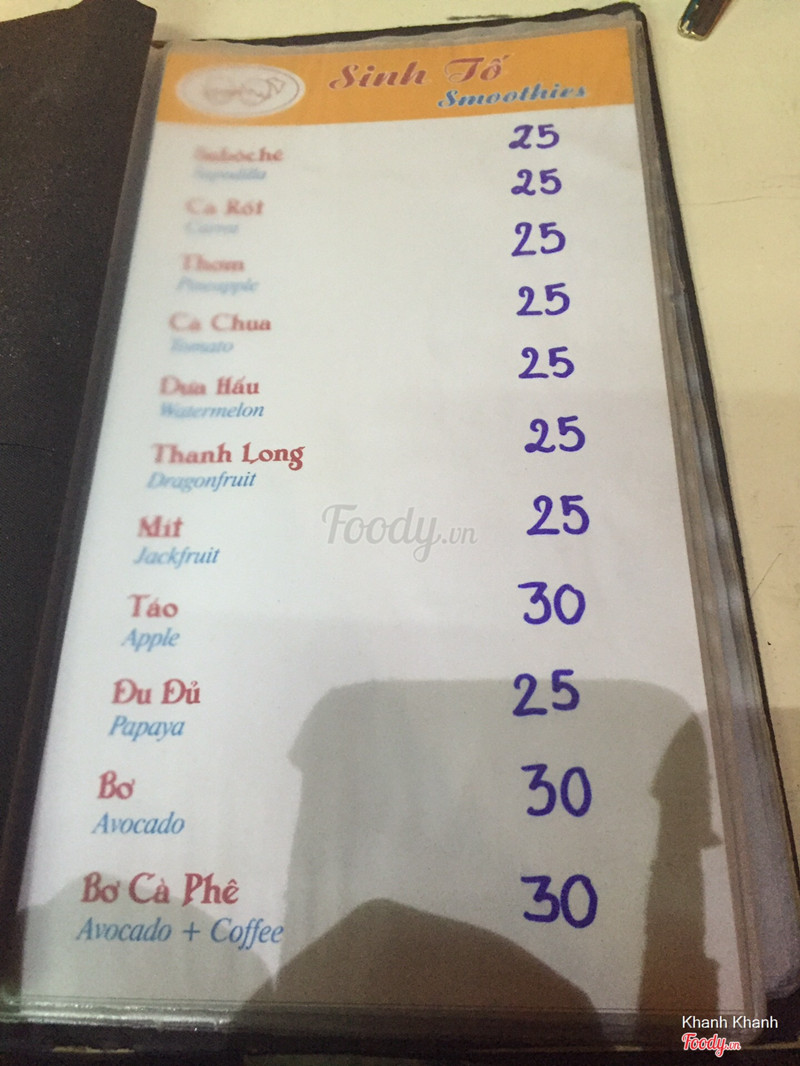 Sinh Tố
Smoothies
Sabôchê 25
Sapodilla
Cà Rốt 25
Carrot
Thơm 25
Pineapple
Cà Chua 25
Tomato
Dưa Hấu 25
Watermelon
Thanh Long 25
Dragonfruit
Mít 25
Jackfruit
Táo 30
Apple
Đu Đủ 25
Papaya
Bơ 30
Avocado
Bơ Cà Phê 30
Avocado + Coffee
Foody.vn
Khanh Khanh
Foody.vn